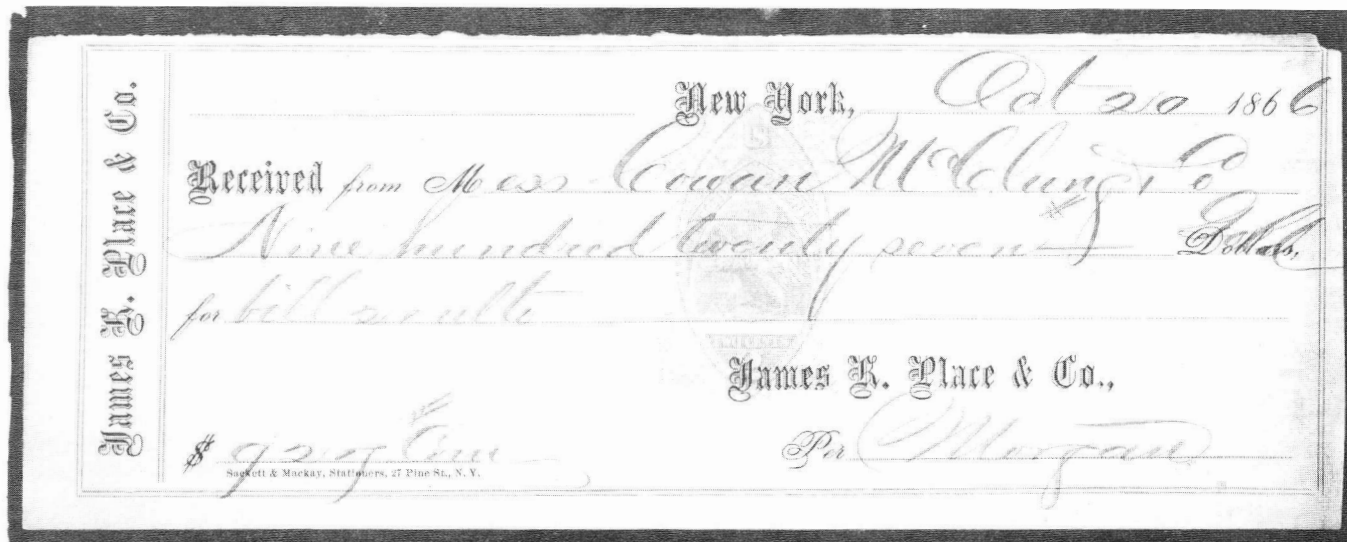 James K. Place & Co.
New York, Oct 20 1866
Received from Mess Cowan McClung & Co
Nine hundred twenty seven Dollars,
for bill ulto
James K. Place & Co.,
$ 927
Per Morgan
Sackett & Mackay, Stationers, 27 Pine St., N. Y.